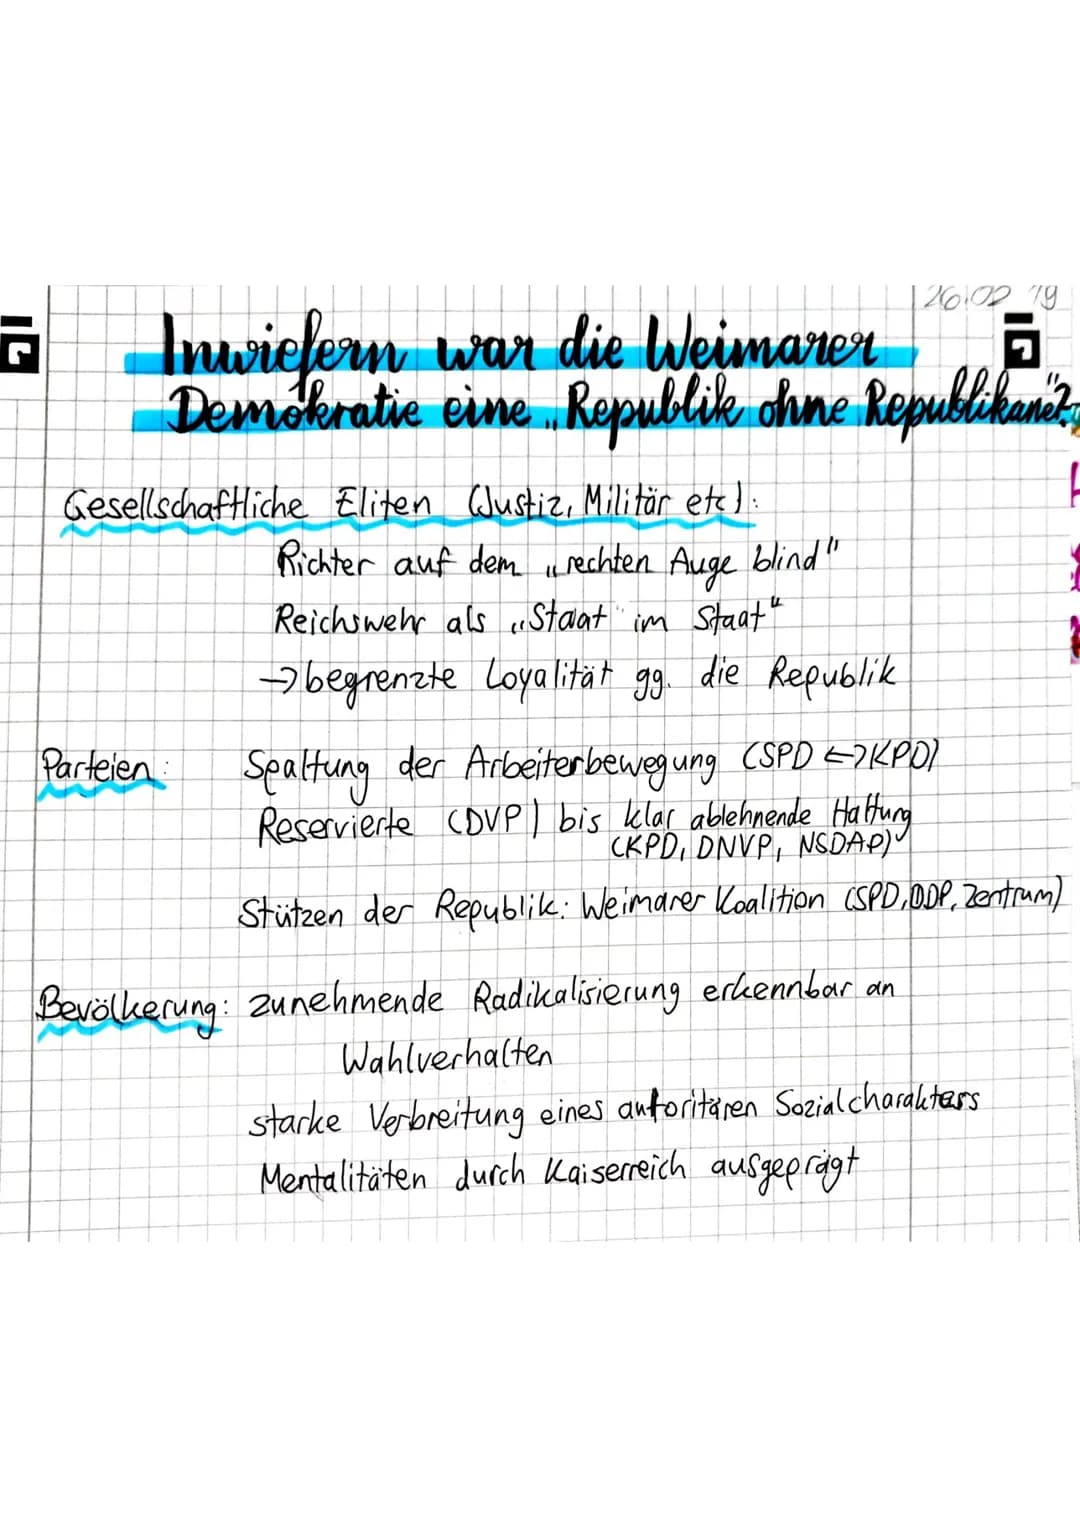 26.02 19
Inwiefern war die Weimarer
Demokratie eine „Republik ohne Republikaner"?
Gesellschaftliche Eliten (Justiz, Militär etc):
Richter auf dem „rechten Auge blind"
Reichswehr als „Staat im Staat"
→ begrenzte Loyalität gg. die Republik
Parteien: Spaltung der Arbeiterbewegung (SPD ↔ KPD)
Reservierte (DVP) bis klar ablehnende Haltung
(KPD, DNVP, NSDAP)
Stützen der Republik: Weimarer Koalition (SPD, DDP, Zentrum)
Bevölkerung: zunehmende Radikalisierung erkennbar an
Wahlverhalten
starke Verbreitung eines autoritären Sozialcharakters
Mentalitäten durch Kaiserreich ausgeprägt